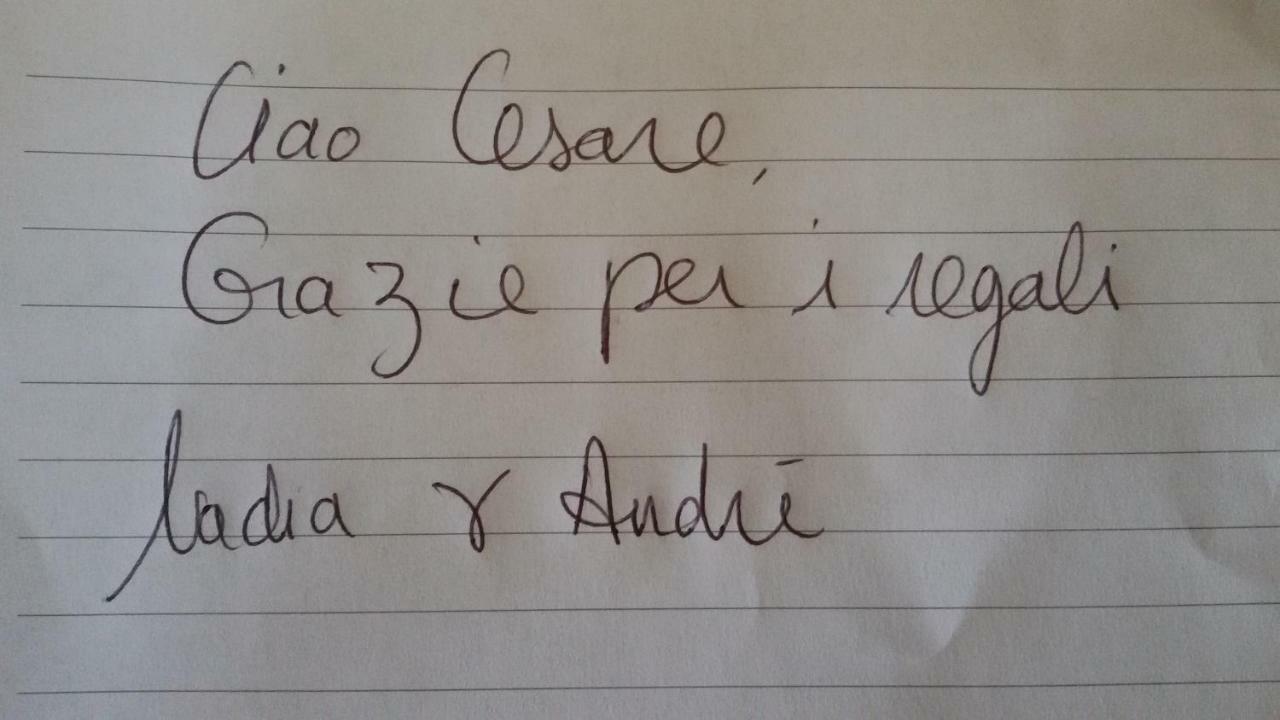 Ciao Cesare,
Grazie per i regali
Nadia & André